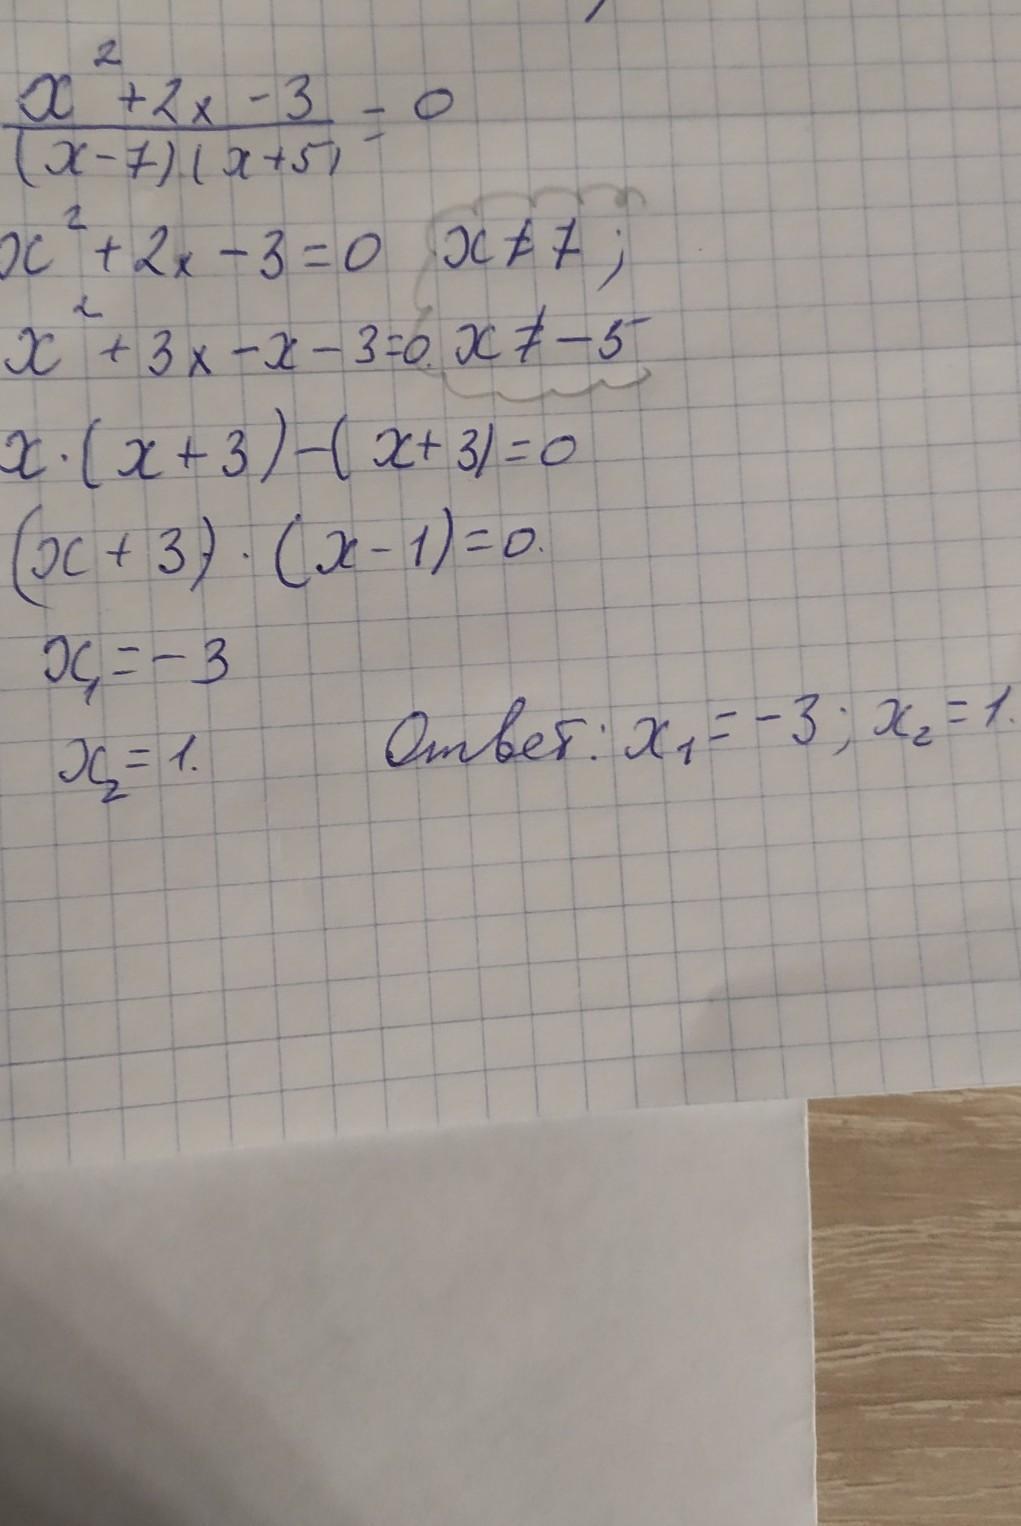 x² + 2x - 3 / (x - 7)(x + 5) = 0
x² + 2x - 3 = 0 x ≠ 7;
x² + 3x - x - 3 = 0. x ≠ -5
x · (x + 3) - (x + 3) = 0
(x + 3) · (x - 1) = 0.
x₁ = -3
x₂ = 1. Ответ: x₁ = -3; x₂ = 1.